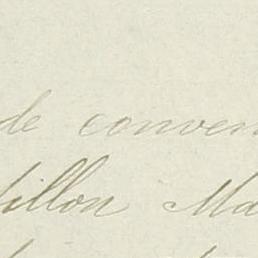 de conven
illon Ma